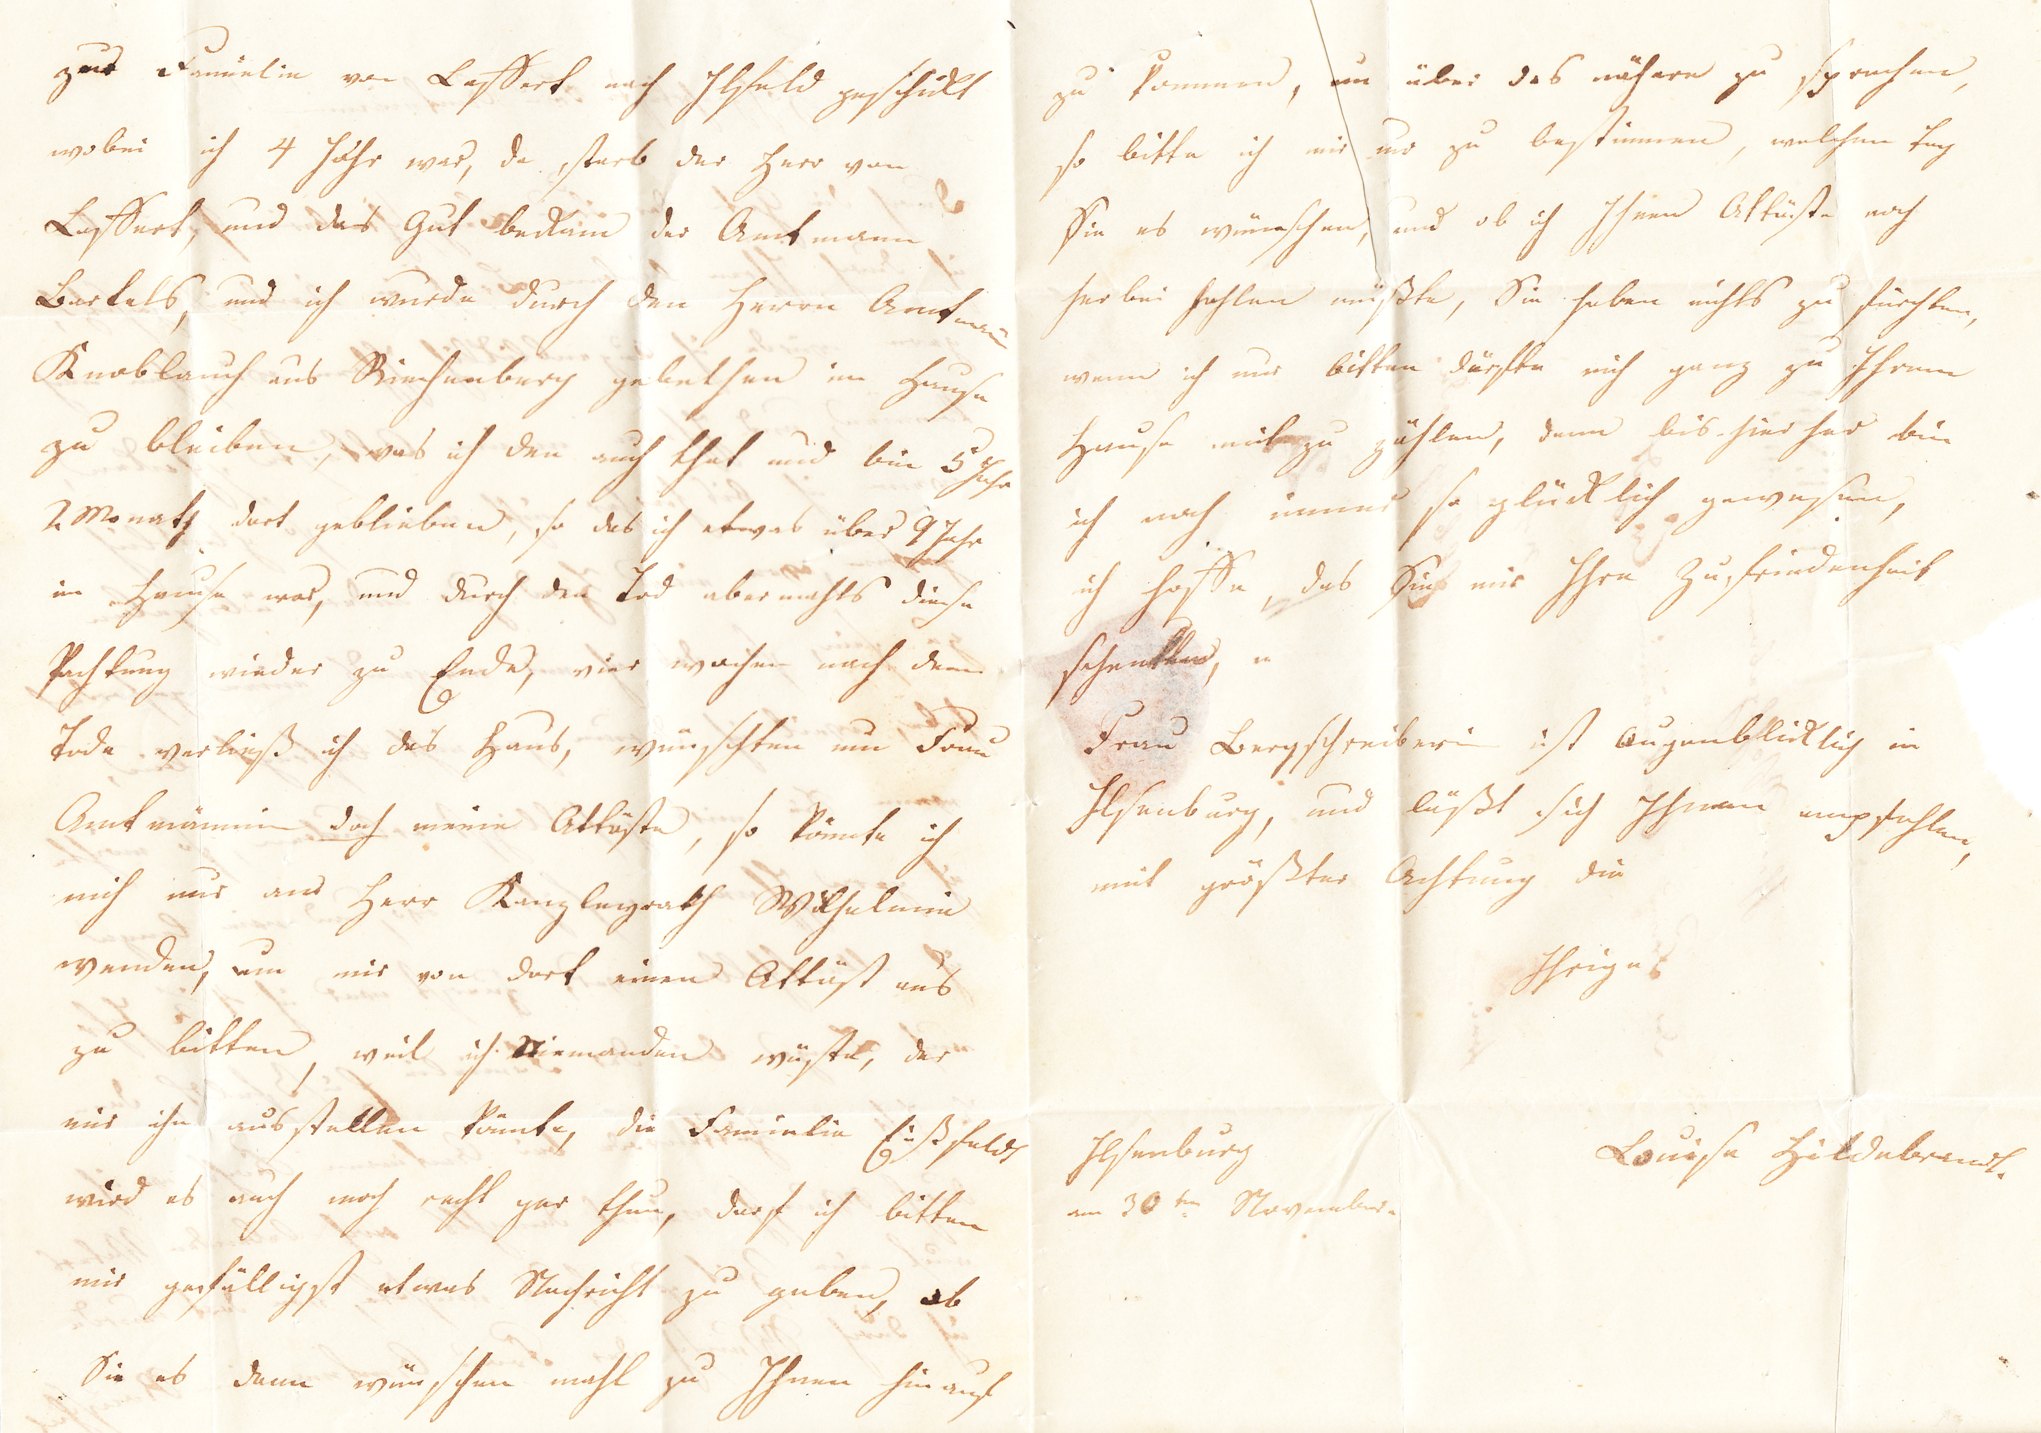 zur Famielie von Lessert nach Ilfeld geschickt
wobei ich 4 Jahr war, da starb der Herr von
Lessert, und das Gut bekam der Amtmann
Bartels, und ich wurde durch den Herrn Amtmann
Knoblauch aus Riechenberg gebethen im Hause
zu bleiben, was ich den auch that und bin 5 Jahr
2 Monath dort geblieben, so das ich etwas über 9 Jahr
im Hause war, und durch den Tod abermahls diese
Pachtung wieder zu Ende, vier wochen nach dem
Tode verließ ich das Haus, wünschten nun Frau
Amtmännin doch meine Attäste, so könnte ich
mich nur ans Herr Kanzleyrath Wilhelmie
wenden, um mir von dort einen Attäst aus
zu bitten, weil ich Niemanden wüste, der
mir ihn ausstellen könnte, die Famielie
wird es auch noch recht gar thun, darf ich bitten
mir gefälligst etwas Nachricht zu geben, ob
Sie es dann wünschen mahl zu Ihnen hinauf
zu kommen, um über das nähere zu sprechen,
so bitte ich mir nur zu bestimmen, welchen Tag
Sie es wünschen, und ob ich Ihnen Attäste noch
herbei hohlen müßte, Sie haben nichts zu fürchten,
wenn ich nur bitten dürfte mich ganz zu Ihrem
Hause mit zu zählen, denn bis hierher bin
ich noch immer so glücklich gewesen,
ich hoffe, das Sie mir Ihre Zufriedenheit
schenken,
Frau Bergschreiberin ist augenblicklich in
Ilsenburg, und läßt sich Ihnen empfehlen,
mit größter Achtung die
Ihrige
Ilsenburg
am 30ten November.
Louise Hildebrandt.